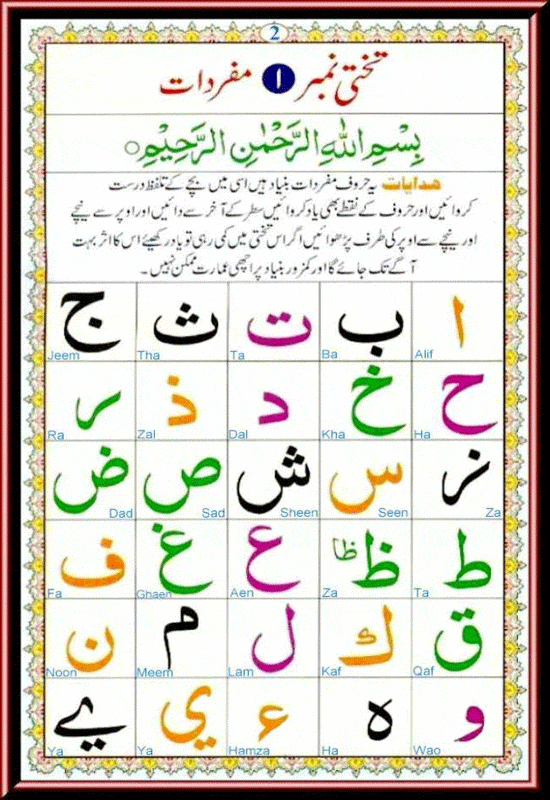 2
تختی نمبر ۱ مفردات
بِسْمِ اللهِ الرَّحْمٰنِ الرَّحِيْمِ
ھدایات یہ حروف مفردات بنیاد ہیں اسی میں بچے کے تلفظ درست
کروائیں اور حروف کے نقطے بھی یاد کروائیں سطر کے آخر سے دائیں اور اوپر سے نیچے
اور نیچے سے اوپر کی طرف پڑھوائیں اگر اس تختی میں کمی رہی تو یاد رکھیئے اس کا اثر بہت
آگے تک جائے گا اور کمزور بنیاد پر اچھی عمارت ممکن نہیں۔
ا ب ت ث ج
Alif Ba Ta Tha Jeem
ح خ د ذ ر
Ha Kha Dal Zal Ra
ز س ش ص ض
Za Seen Sheen Sad Dad
ط ظ ظا ع غ ف
Ta Za Aen Ghaen Fa
ق ك ل م ن
Qaf Kaf Lam Meem Noon
و ه ء ي ے
Wao Ha Hamza Ya Ya